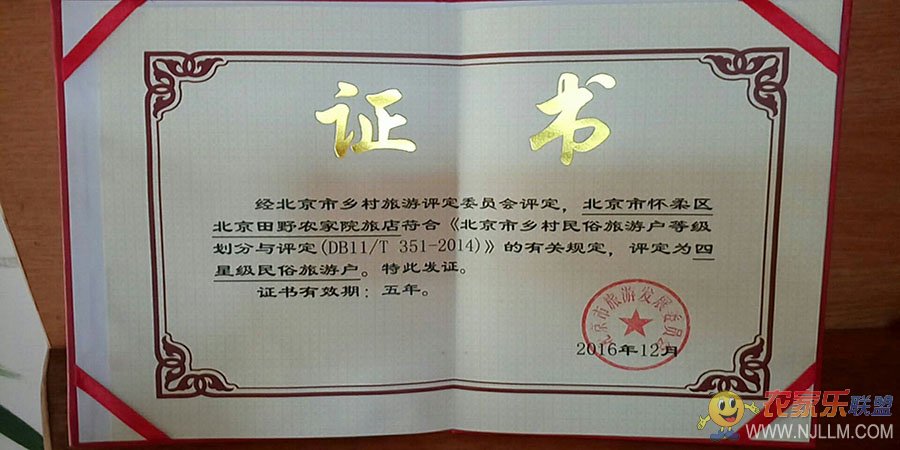 证书
经北京市乡村旅游评定委员会评定，北京市怀柔区
北京田野农家院旅店符合《北京市乡村民俗旅游户等级
划分与评定(DB11/T 351-2014)》的有关规定，评定为四
星级民俗旅游户。特此发证。
证书有效期：五年。
北京市旅游发展委员会
2016年12月
农家乐联盟
WWW.NJLLM.COM